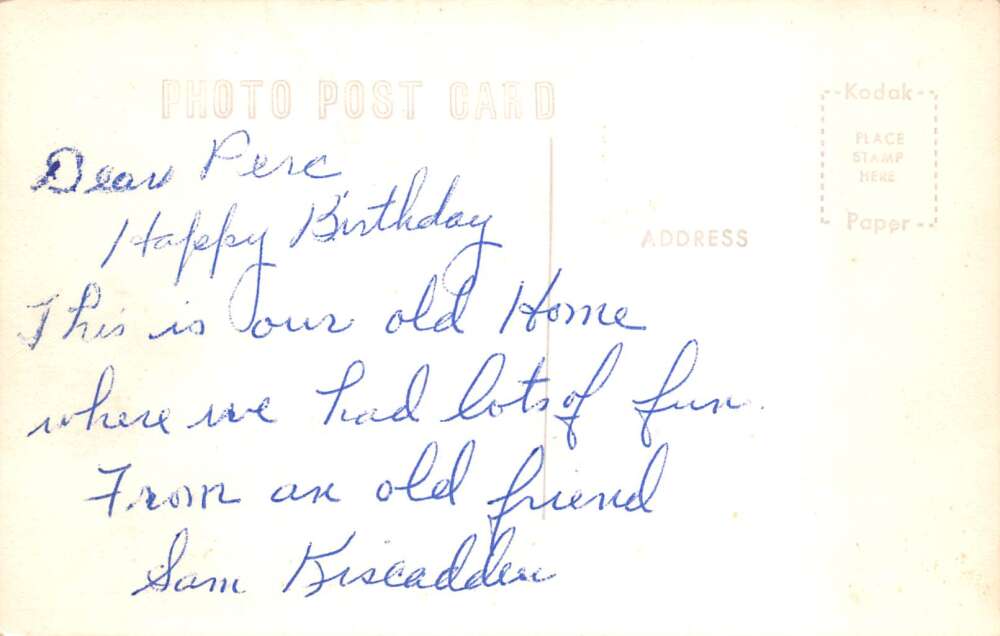 PHOTO POST CARD
Kodak
PLACE
STAMP
HERE
Paper
ADDRESS
Dear Perc
Happy Birthday
This is our old Home
where we had lots of fun.
From an old friend
Sam Kiscadden